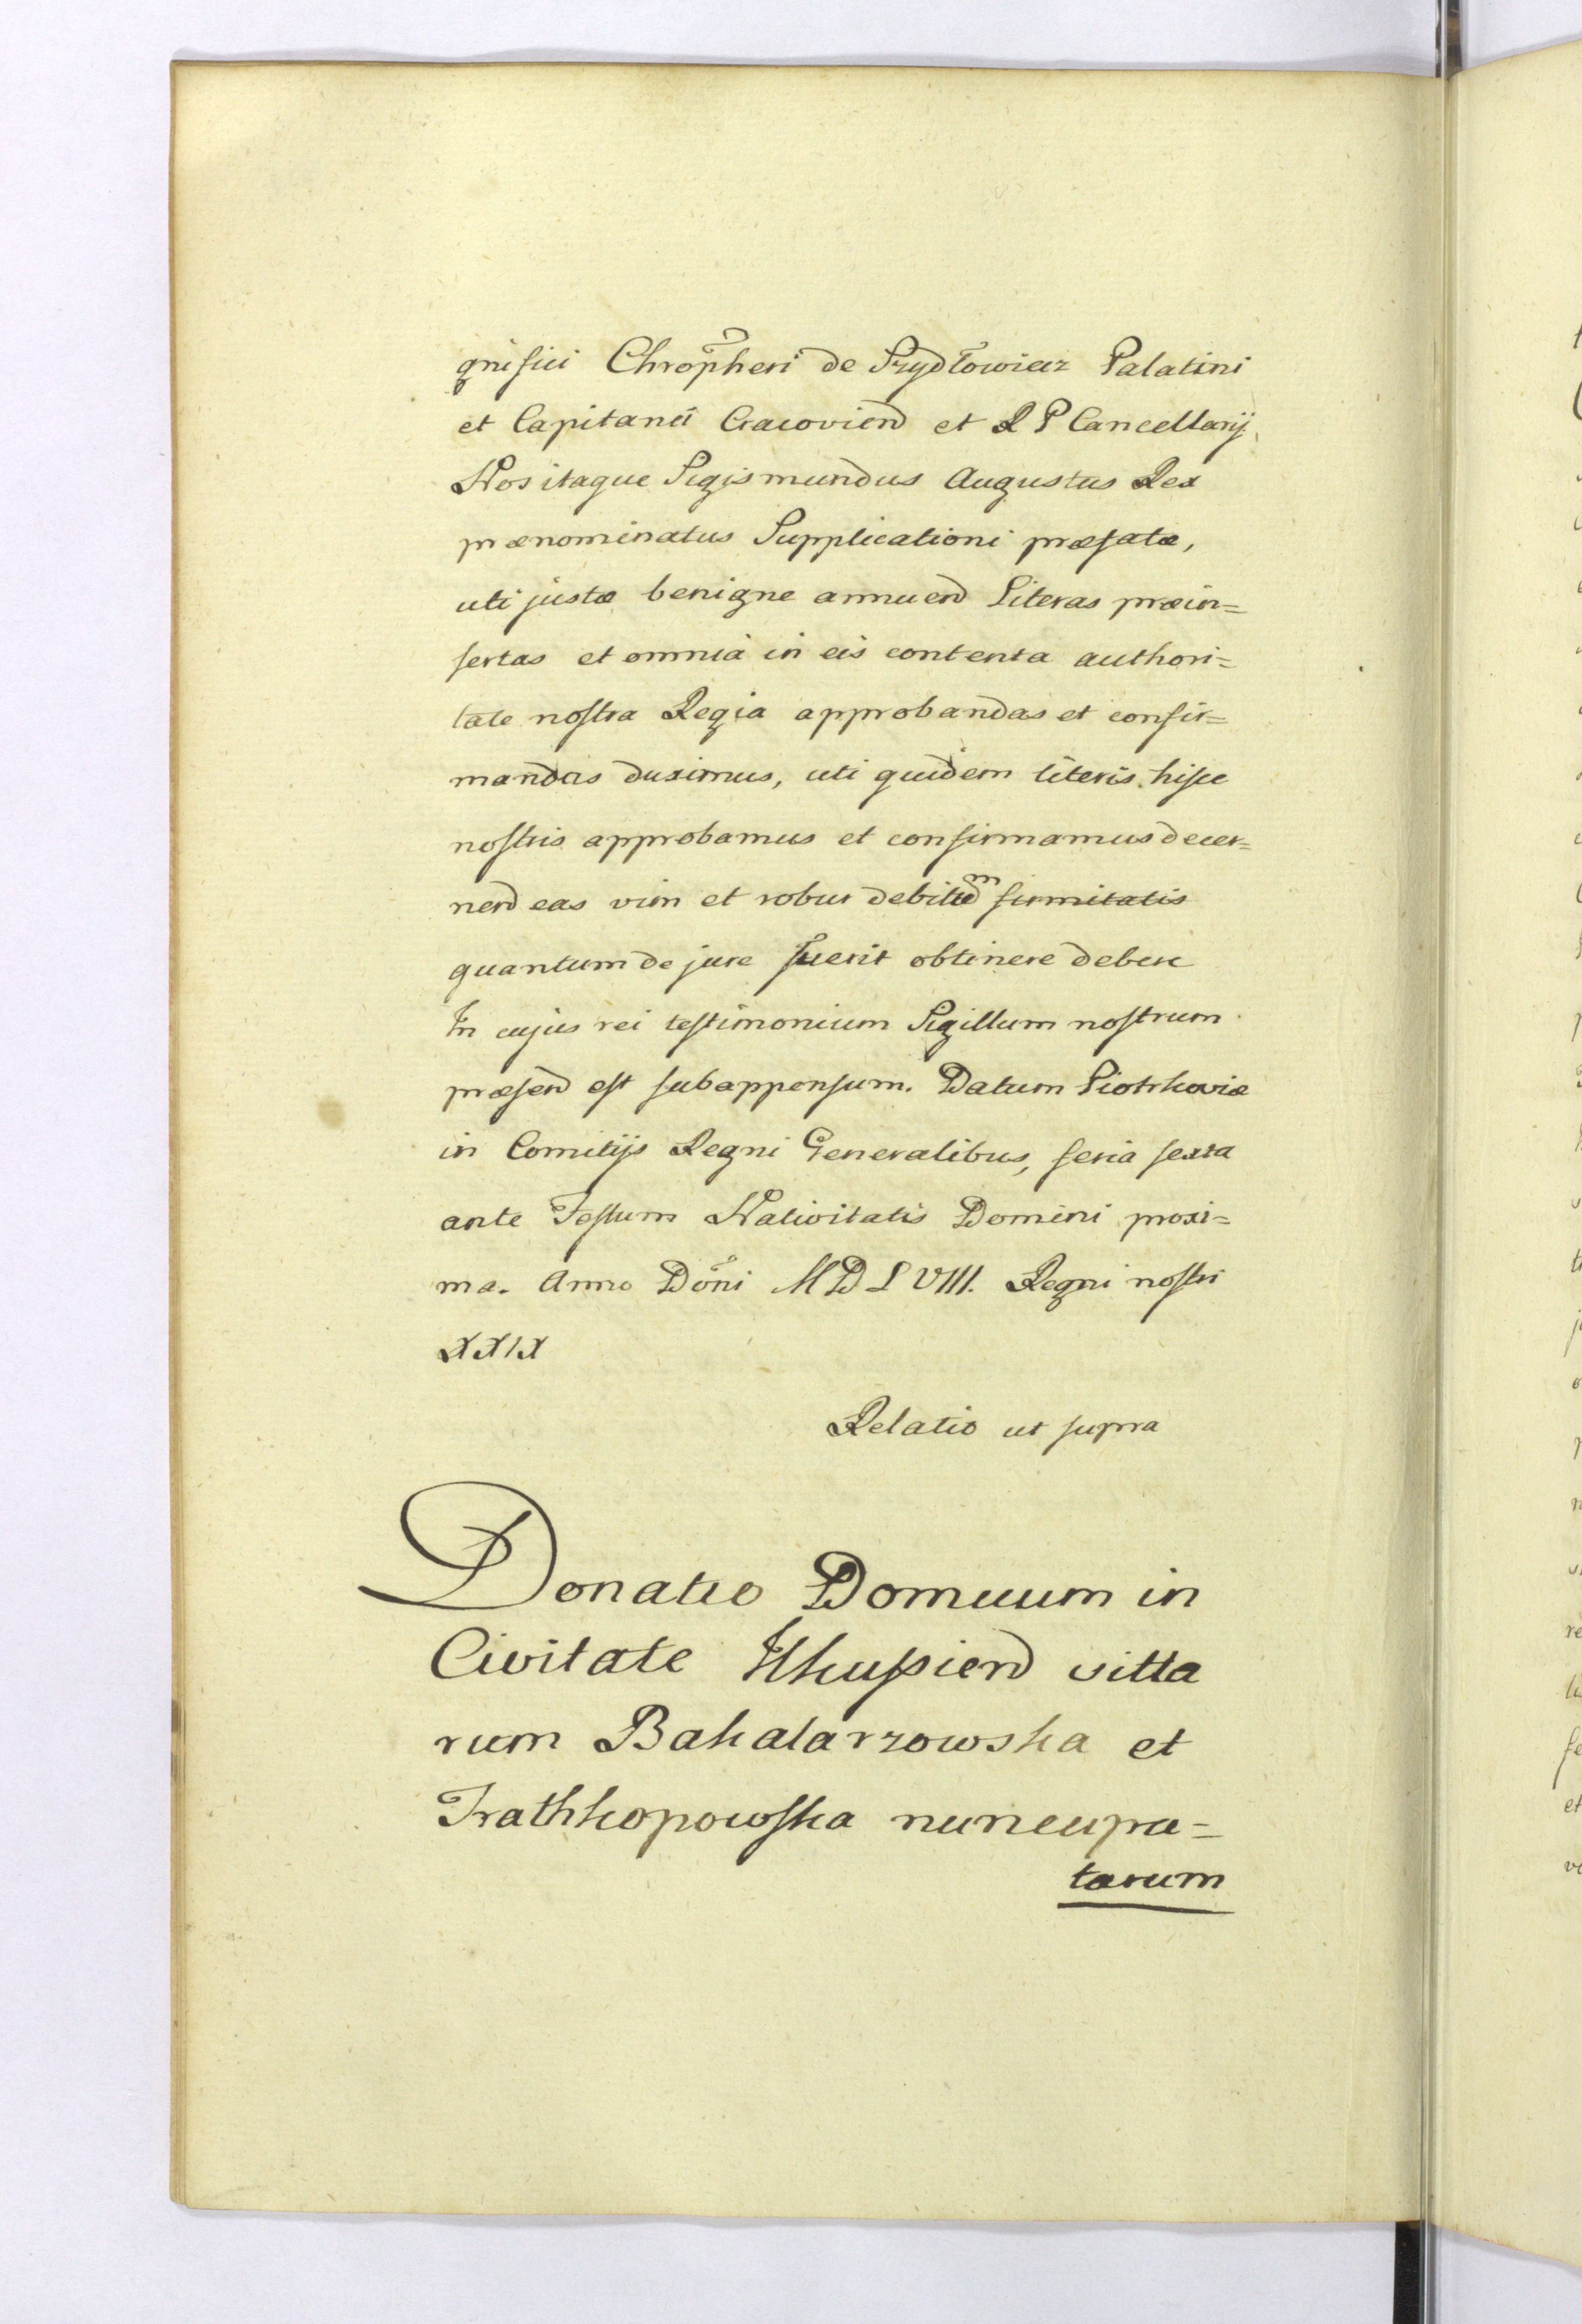 gnifici Chrõpheri de Szydłowiecz Palatini
et Capitanei Cracovien̄ et R P Cancellarij
Nos itaque Sigismundus Augustus Rex
prænominatus Supplicationi præfatæ,
uti justæ benigne annuen̄ Literas præin=
sertas et omnia in eis contenta authori=
tate nostra Regia approbandas et confir=
mandas duximus, uti quidem literis hisce
nostris approbamus et confirmamus decer=
nen̄ eas vim et robur debitum firmitatis
quantum de jure fuerit obtinere debere
In cujus rei testimonium Sigillum nostrum
præsen̄ est subappensum. Datum Piotrkoviæ
in Comitijs Regni Generalibus, feria sexta
ante Festum Nativitatis Domini proxi=
ma. Anno Dõni MDLVIII. Regni nostri
XXIX
Relatio ut supra
Donatio Domuum in
Civitate Ilkusien̄ villa
rum Bakalarzowska et
Trathkopowska nuncupa=
tarum